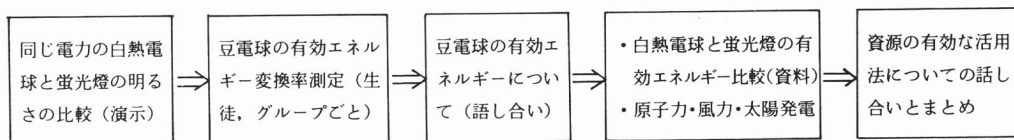 同じ電力の白熱電
球と蛍光燈の明る
さの比較（演示）
豆電球の有効エネル
ギー変換率測定（生
徒，グループごと）
豆電球の有効エ
ネルギーについ
て（語し合い）
・白熱電球と蛍光燈の有
効エネルギー比較（資料）
・原子力・風力・太陽発電
資源の有効な活用
法についての話し
合いとまとめ